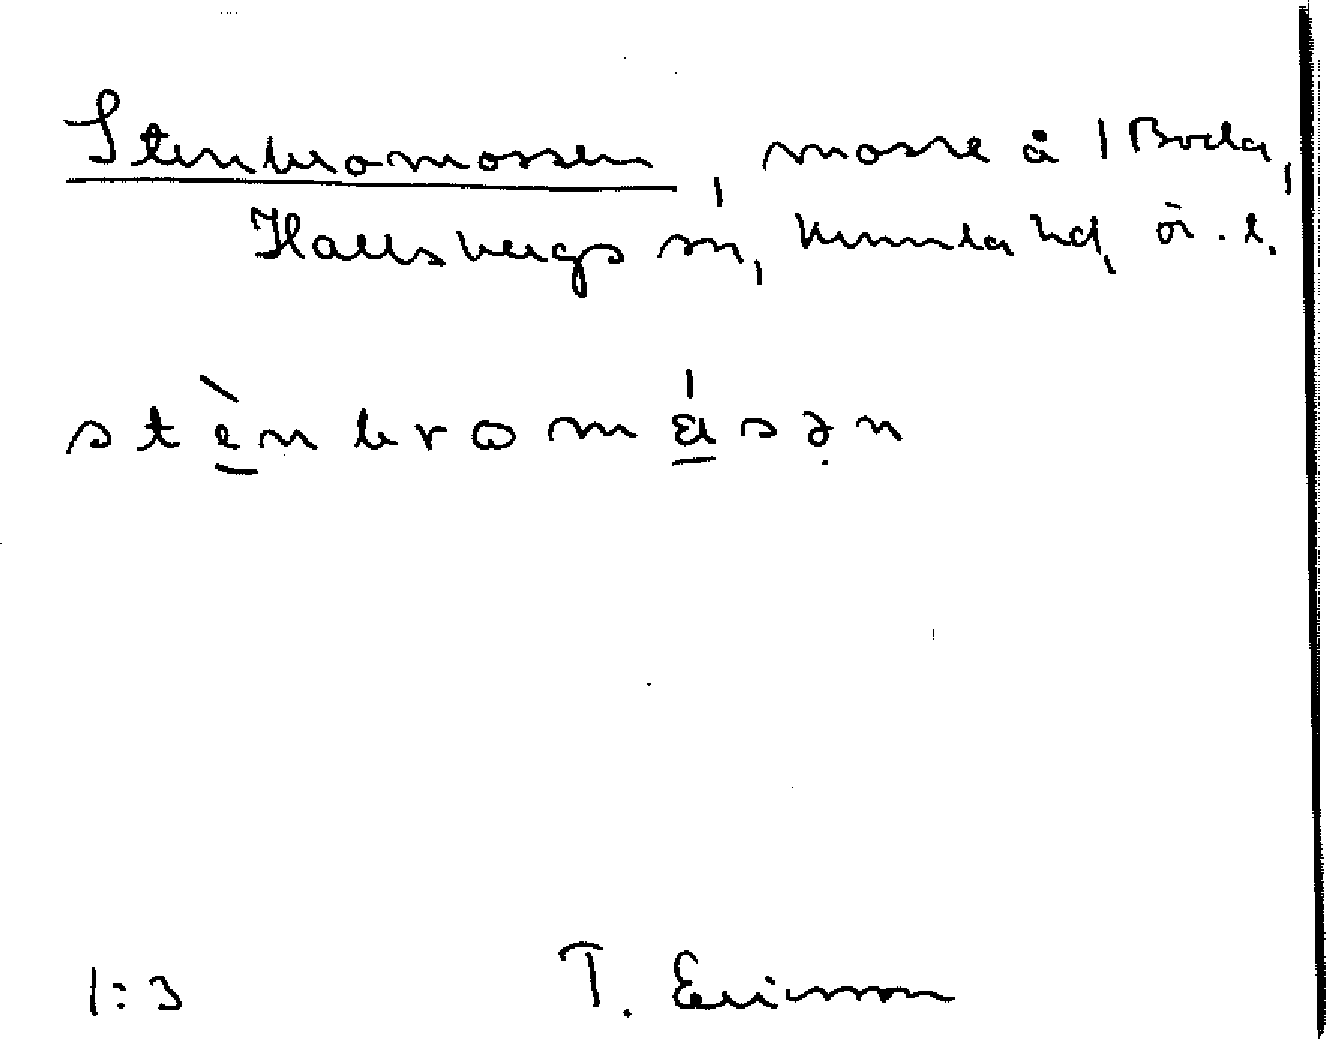 Stenbromossen, mosse å 1 Boda,
Hallsbergs sn, Kumla hd, ör. l.
stènbromåsən
1:3 T. Ericsson